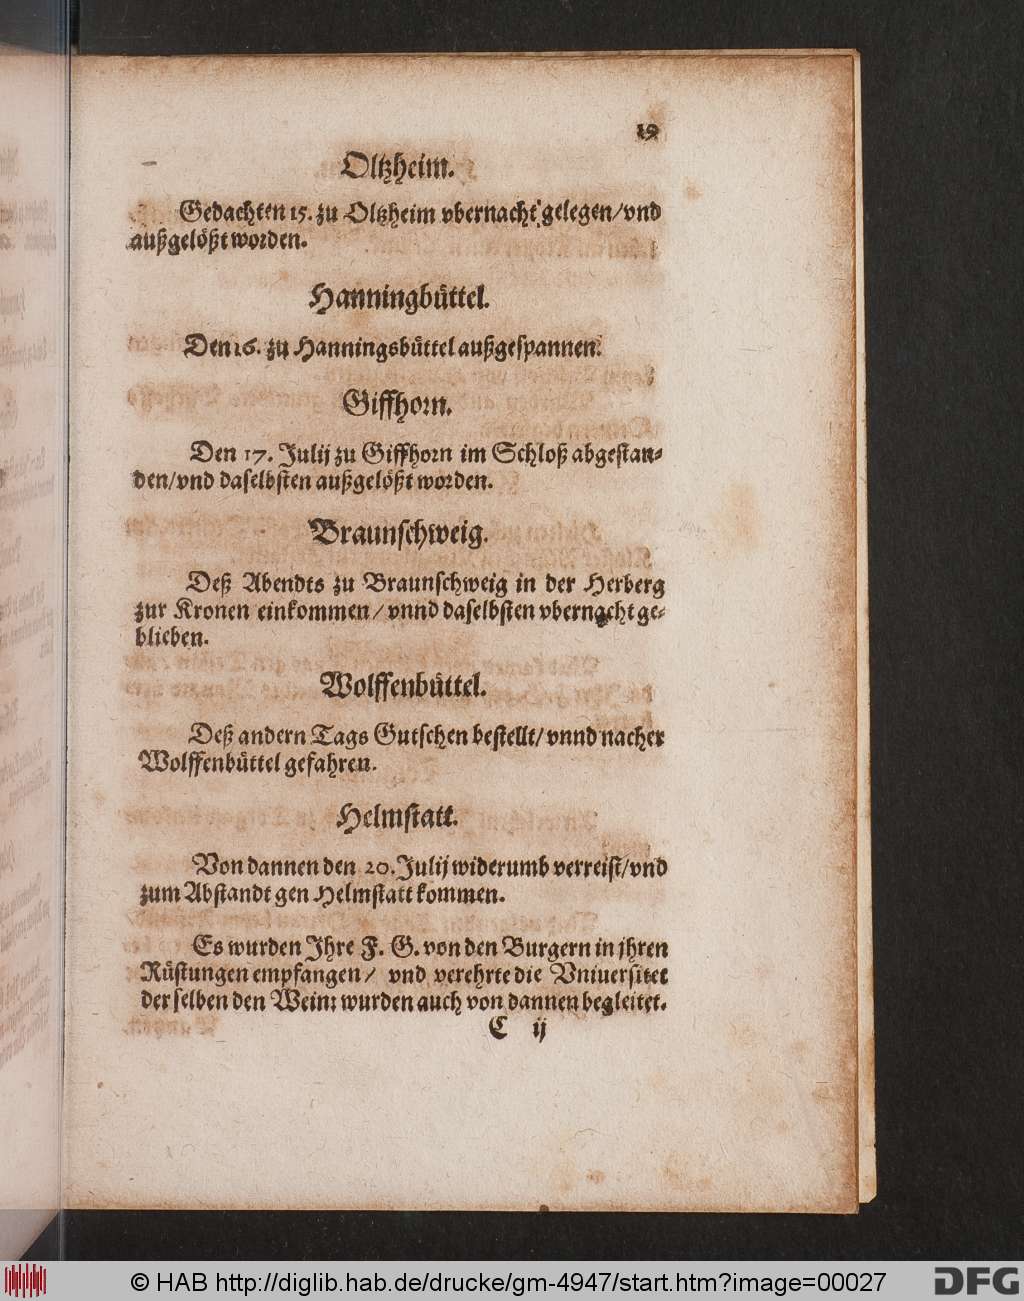 19
Oltzheim.
Gedachten 15. zu Oltzheim vbernacht gelegen/vnd
außgelößt worden.
Hanningbüttel.
Den 16. zu Hanningsbüttel außgespannen.
Giffhorn.
Den 17. Julij zu Giffhorn im Schloß abgestan-
den/vnd daselbsten außgelößt worden.
Braunschweig.
Deß Abendts zu Braunschweig in der Herberg
zur Kronen einkommen/vnnd daselbsten vbernacht ge-
blieben.
Wolffenbüttel.
Deß andern Tags Gutschen bestellt/vnnd nacher
Wolffenbüttel gefahren.
Helmstatt.
Von dannen den 20. Julij widerumb verreist/vnd
zum Abstandt gen Helmstatt kommen.
Es wurden Jhre F. G. von den Burgern in jhren
Rüstungen empfangen/ vnd verehrte die Vniuersitet
derselben den Wein: wurden auch von dannen begleitet.
C ij
© HAB http://diglib.hab.de/drucke/gm-4947/start.htm?image=00027
DFG